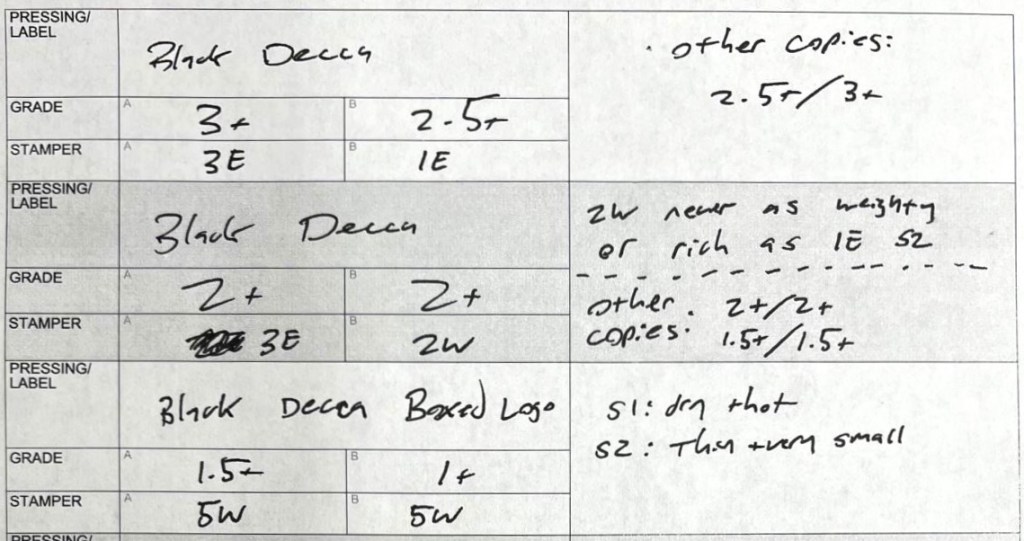 PRESSING/
LABEL
Black Decca
· other copies:
2.5+/3+
GRADE
A 3+
B 2.5+
STAMPER
A 3E
B 1E
PRESSING/
LABEL
Black Decca
2W never as weighty
or rich as 1E S2
GRADE
A 2+
B 2+
other 2+/2+
copies: 1.5+/1.5+
STAMPER
A 3E
B 2W
PRESSING/
LABEL
Black Decca Boxed Logo
S1: dry + hot
S2: Thin + very small
GRADE
A 1.5+
B 1+
STAMPER
A 5W
B 5W
PRESSING/